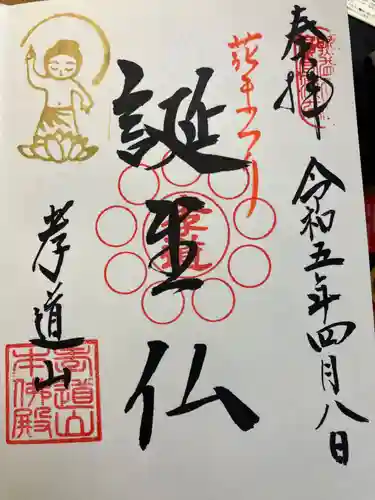 奉拝
令和五年四月八日
花まつり
誕生仏
孝道
孝道山
孝道山本佛殿